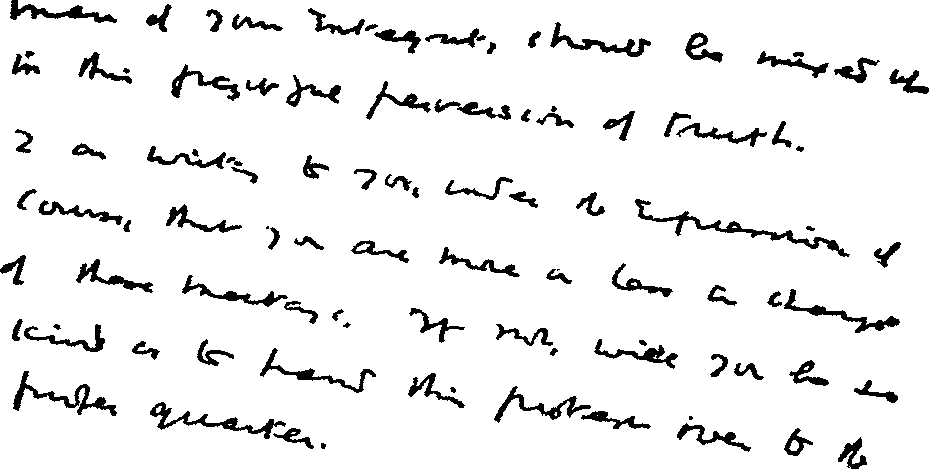 man of your Integrity, should be mixed up
in this grotesque perversion of Truth.
I am writing to you, under the Impression of
Course, that you are more or less in charge
of these meetings. If not, will you be so
kind as to hand this protest over to the
proper quarter.